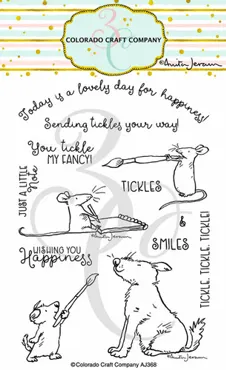 COLORADO CRAFT COMPANY
©Anita Jeram
Today is a lovely day for happiness!
Sending tickles your way!
You tickle
MY FANCY!
JUST A LITTLE
Note
TICKLES
&
SMILES
TICKLE, TICKLE, TICKLE!
WISHING YOU
Happiness
©Anita Jeram
©Anita Jeram
©Colorado Craft Company AJ368